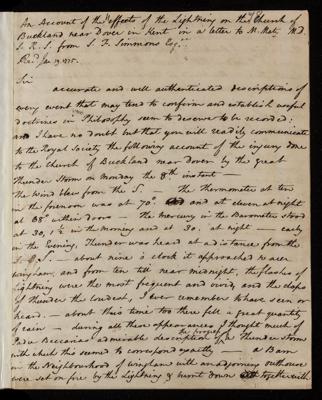 An Account of the effects of the Lightning on the Church of
Buckland near Dover in Kent in a letter to M. Maty M.D.
S. R. S. from S. F. Simmons Esq.
Rec'd Jan 19. 1775.
Sir
accurate and well authenticated descriptions of
every event that may tend to confirm and establish useful
doctrines in Philosophy seem to deserve to be recorded:
and I have no doubt but that you will readily communicate
to the Royal Society the following account of the injury done
to the Church of Buckland near Dover by the great
Thunder Storm on Monday the 8th instant —
The Wind blew from the S. — The thermometer at ten
in the forenoon was at 70° and at eleven at night
at 68° within doors — The Mercury in the Barometer stood
at 30, 1½ in the Morning and at 30. at night — early
in the Evening, Thunder was heard at a distance from the
S. — about nine o clock it approached nearer
Wingham, and from ten till near midnight, the flashes of
Lightning were the most frequent and vivid, and the claps
of thunder the loudest, I ever remember to have seen or
heard. — about this time too there fell a great quantity
of rain — during all these appearances I thought much of
Padre Beccaria's admirable description of the progress of a Thunder Storm
with which this seemed to correspond exactly — a Barn
in the Neighbourhood of Wingham with an adjoining outhouse
were set on fire by the Lightning & burnt down together with